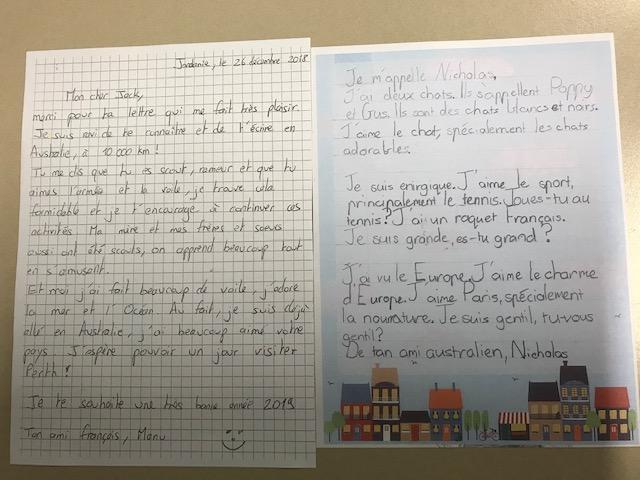 Jordanie, le 26 décembre 2018
Mon cher Jack,
merci pour ta lettre qui me fait très plaisir.
Je suis ravi de te connaître et de t'écrire en
Australie, à 10 000 km !
Tu me dis que tu es scout, rameur et que tu
aimes l'armée et la voile, je trouve cela
formidable et je t'encourage à continuer ces
activités. Ma mère et mes frères et soeurs
aussi ont été scouts, on apprend beaucoup tout
en s'amusant.
Et moi j'ai fait beaucoup de voile, j'adore
la mer et l'Océan. Au fait, je suis déjà
allé en Australie, j'ai beaucoup aimé votre
pays. J'espère pouvoir un jour visiter
Perth !
Je te souhaite une très bonne année 2019
Ton ami français, Manu
Je m'appelle Nicholas,
J'ai deux chats. Ils s'appellent Poppy
et Gus. Ils sont des chats blancs et noirs.
J'aime le chat, spécialement les chats
adorables.
Je suis enirgique. J'aime le sport,
principalement le tennis. Joues-tu au
tennis? J'ai un roquet français.
Je suis grande, es-tu grand ?
J'ai vu le Europe. J'aime le charme
d'Europe. J'aime Paris, spécialement
la nourature. Je suis gentil, tu-vous
gentil?
De tan ami australien, Nicholas